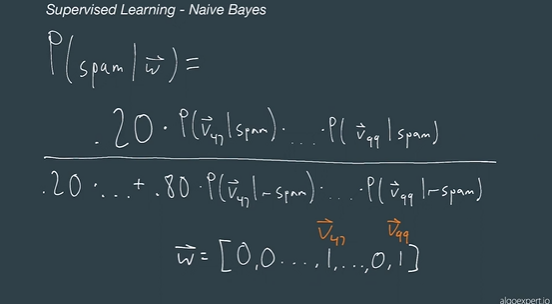 Supervised Learning - Naive Bayes
P(spam|w⃗) =
.20 · P(v⃗₄₇|spam) · ... · P(v⃗₉₉|spam)
.20 · ... + .80 · P(v⃗₄₇|¬spam) · ... · P(v⃗₉₉|¬spam)
v⃗₄₇ v⃗₉₉
w⃗ = [0,0...,1,...,0,1]
algoexpert.io